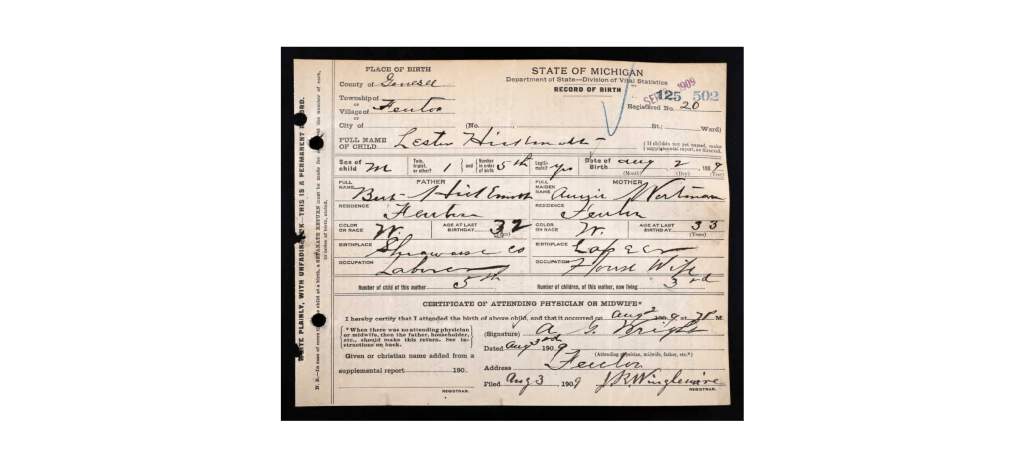 PLACE OF BIRTH
County of Genesee
Township of
or
Village of Fenton
or
City of (No. St.; Ward)
STATE OF MICHIGAN
Department of State—Division of Vital Statistics
RECORD OF BIRTH
SEP 1909
125 502
Registered No. 20
FULL NAME OF CHILD Lester
{If child is not yet named, make supplemental report, as directed.
Sex of child M Twin, triplet, or other? 1 and Number in order of birth 5th Legitimate? yes Date of Birth Aug 2 1909
(Month) (Day) (Year)
FATHER
FULL NAME Bert
RESIDENCE Fenton
COLOR OR RACE W. AGE AT LAST BIRTHDAY 32 (Years)
BIRTHPLACE Shiawassee Co
OCCUPATION Laborer
MOTHER
FULL MAIDEN NAME Wortman
RESIDENCE Fenton
COLOR OR RACE W. AGE AT LAST BIRTHDAY 33 (Years)
BIRTHPLACE Lapeer
OCCUPATION House Wife
Number of child of this mother 5th Number of children, of this mother, now living 3rd
CERTIFICATE OF ATTENDING PHYSICIAN OR MIDWIFE*
I hereby certify that I attended the birth of above child, and that it occurred on Aug 2 1909, at 7 P. M.
{*When there was no attending physician or midwife, then the father, householder, etc., should make this return. See instructions on back.}
(Signature) A. G. Wright
Dated Aug 3rd 1909
(Attending physician, midwife, father, etc.*)
Given or christian name added from a
supplemental report 190
REGISTRAR.
Address Fenton
Filed Aug 3 1909 J R Winglemire
REGISTRAR.
WRITE PLAINLY, WITH UNFADING INK—THIS IS A PERMANENT RECORD.